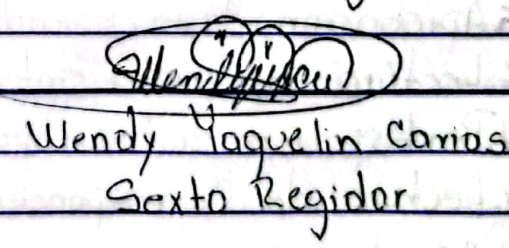 Wendy Yaquelin Carias
Sexto Regidor